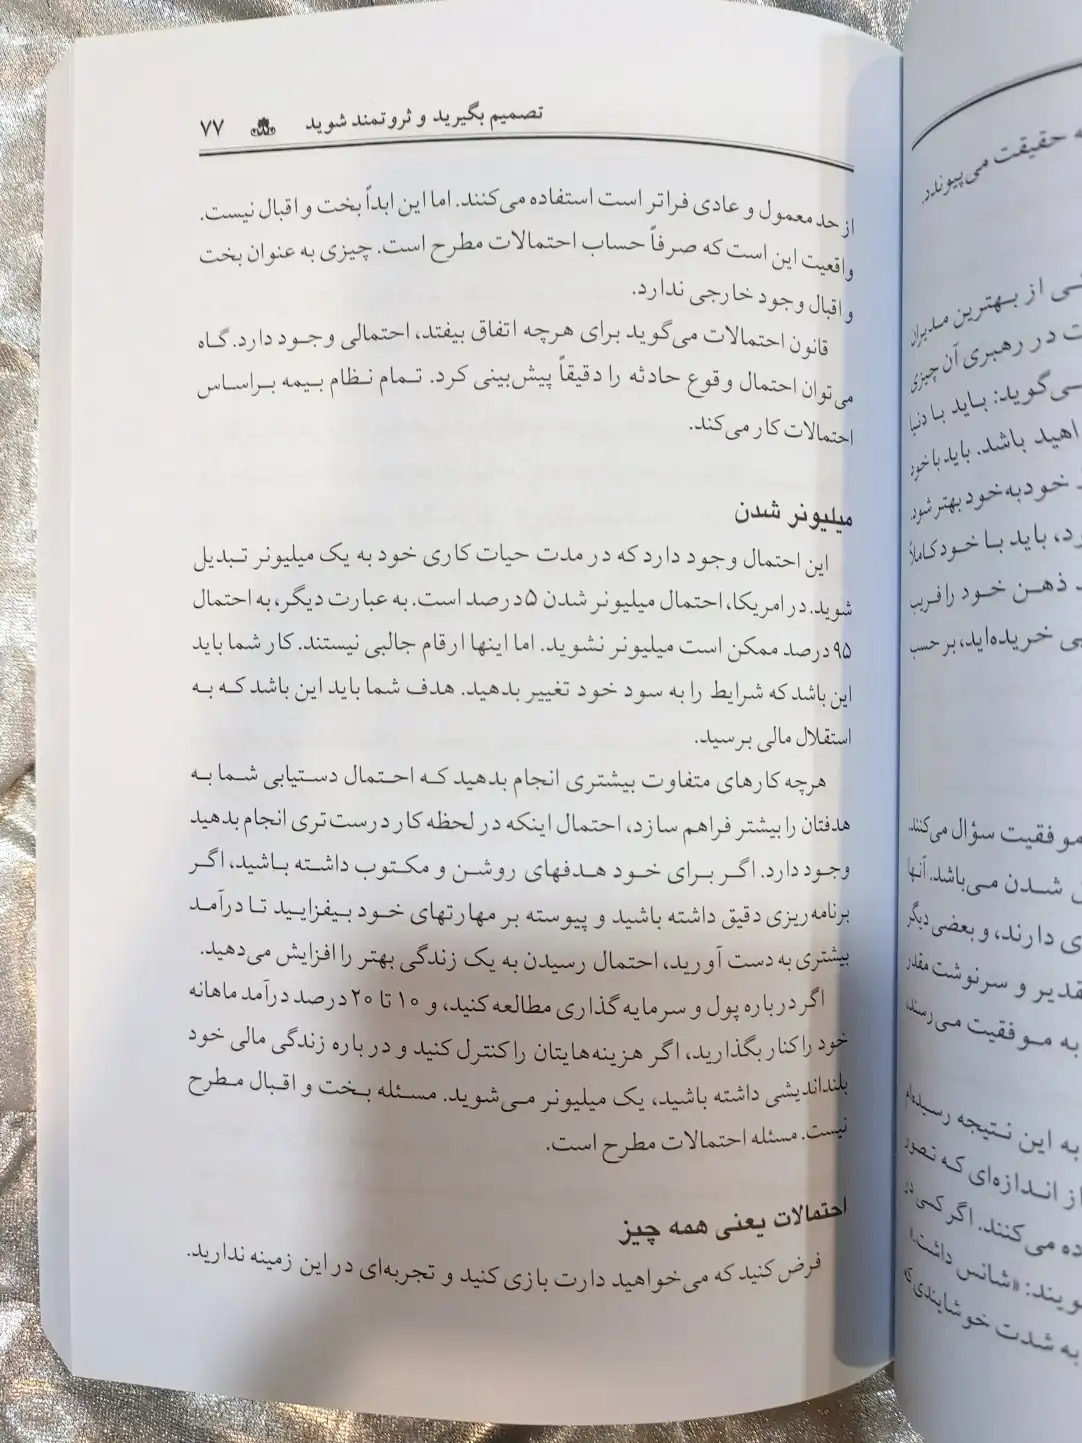 تصمیم بگیرید و ثروتمند شوید ۷۷
از حد معمول و عادی فراتر است استفاده می‌کنند. اما این ابداً بخت و اقبال نیست.
واقعیت این است که صرفاً حساب احتمالات مطرح است. چیزی به عنوان بخت
و اقبال وجود خارجی ندارد.
قانون احتمالات می‌گوید برای هرچه اتفاق بیفتد، احتمالی وجود دارد. گاه
می‌توان احتمال وقوع حادثه را دقیقاً پیش‌بینی کرد. تمام نظام بیمه براساس
احتمالات کار می‌کند.
میلیونر شدن
این احتمال وجود دارد که در مدت حیات کاری خود به یک میلیونر تبدیل
شوید. در امریکا، احتمال میلیونر شدن ۵ درصد است. به عبارت دیگر، به احتمال
۹۵ درصد ممکن است میلیونر نشوید. اما اینها ارقام جالبی نیستند. کار شما باید
این باشد که شرایط را به سود خود تغییر بدهید. هدف شما باید این باشد که به
استقلال مالی برسید.
هرچه کارهای متفاوت بیشتری انجام بدهید که احتمال دستیابی شما به
هدفتان را بیشتر فراهم سازد، احتمال اینکه در لحظه کار درست‌تری انجام بدهید
وجود دارد. اگر برای خود هدفهای روشن و مکتوب داشته باشید، اگر
برنامه‌ریزی دقیق داشته باشید و پیوسته بر مهارتهای خود بیفزایید تا درآمد
بیشتری به دست آورید، احتمال رسیدن به یک زندگی بهتر را افزایش می‌دهید.
اگر درباره پول و سرمایه‌گذاری مطالعه کنید، و ۱۰ تا ۲۰ درصد درآمد ماهانه
خود را کنار بگذارید، اگر هزینه‌هایتان را کنترل کنید و درباره زندگی مالی خود
بلنداندیشی داشته باشید، یک میلیونر می‌شوید. مسئله بخت و اقبال مطرح
نیست. مسئله احتمالات مطرح است.
احتمالات یعنی همه چیز
فرض کنید که می‌خواهید دارت بازی کنید و تجربه‌ای در این زمینه ندارید.
حقیقت می‌پیوندد.
از بهترین مدیران
در رهبری آن چیزی
می‌گوید: باید با دنیا
باشد. باید با خود
خودبه‌خود بهتر شود.
باید با خود کاملاً
ذهن خود را فریب
خریده‌اید، بر حسب
موفقیت سؤال می‌کنند.
شدن می‌باشد. آنها
دارند، و بعضی دیگر
تقدیر و سرنوشت مقدر
به موفقیت می‌رسند،
به این نتیجه رسیده‌ام
از اندازه‌ای که تصور
می‌کنند. اگر کسی در
«شانس داشت.»
به شدت خوشایندی که